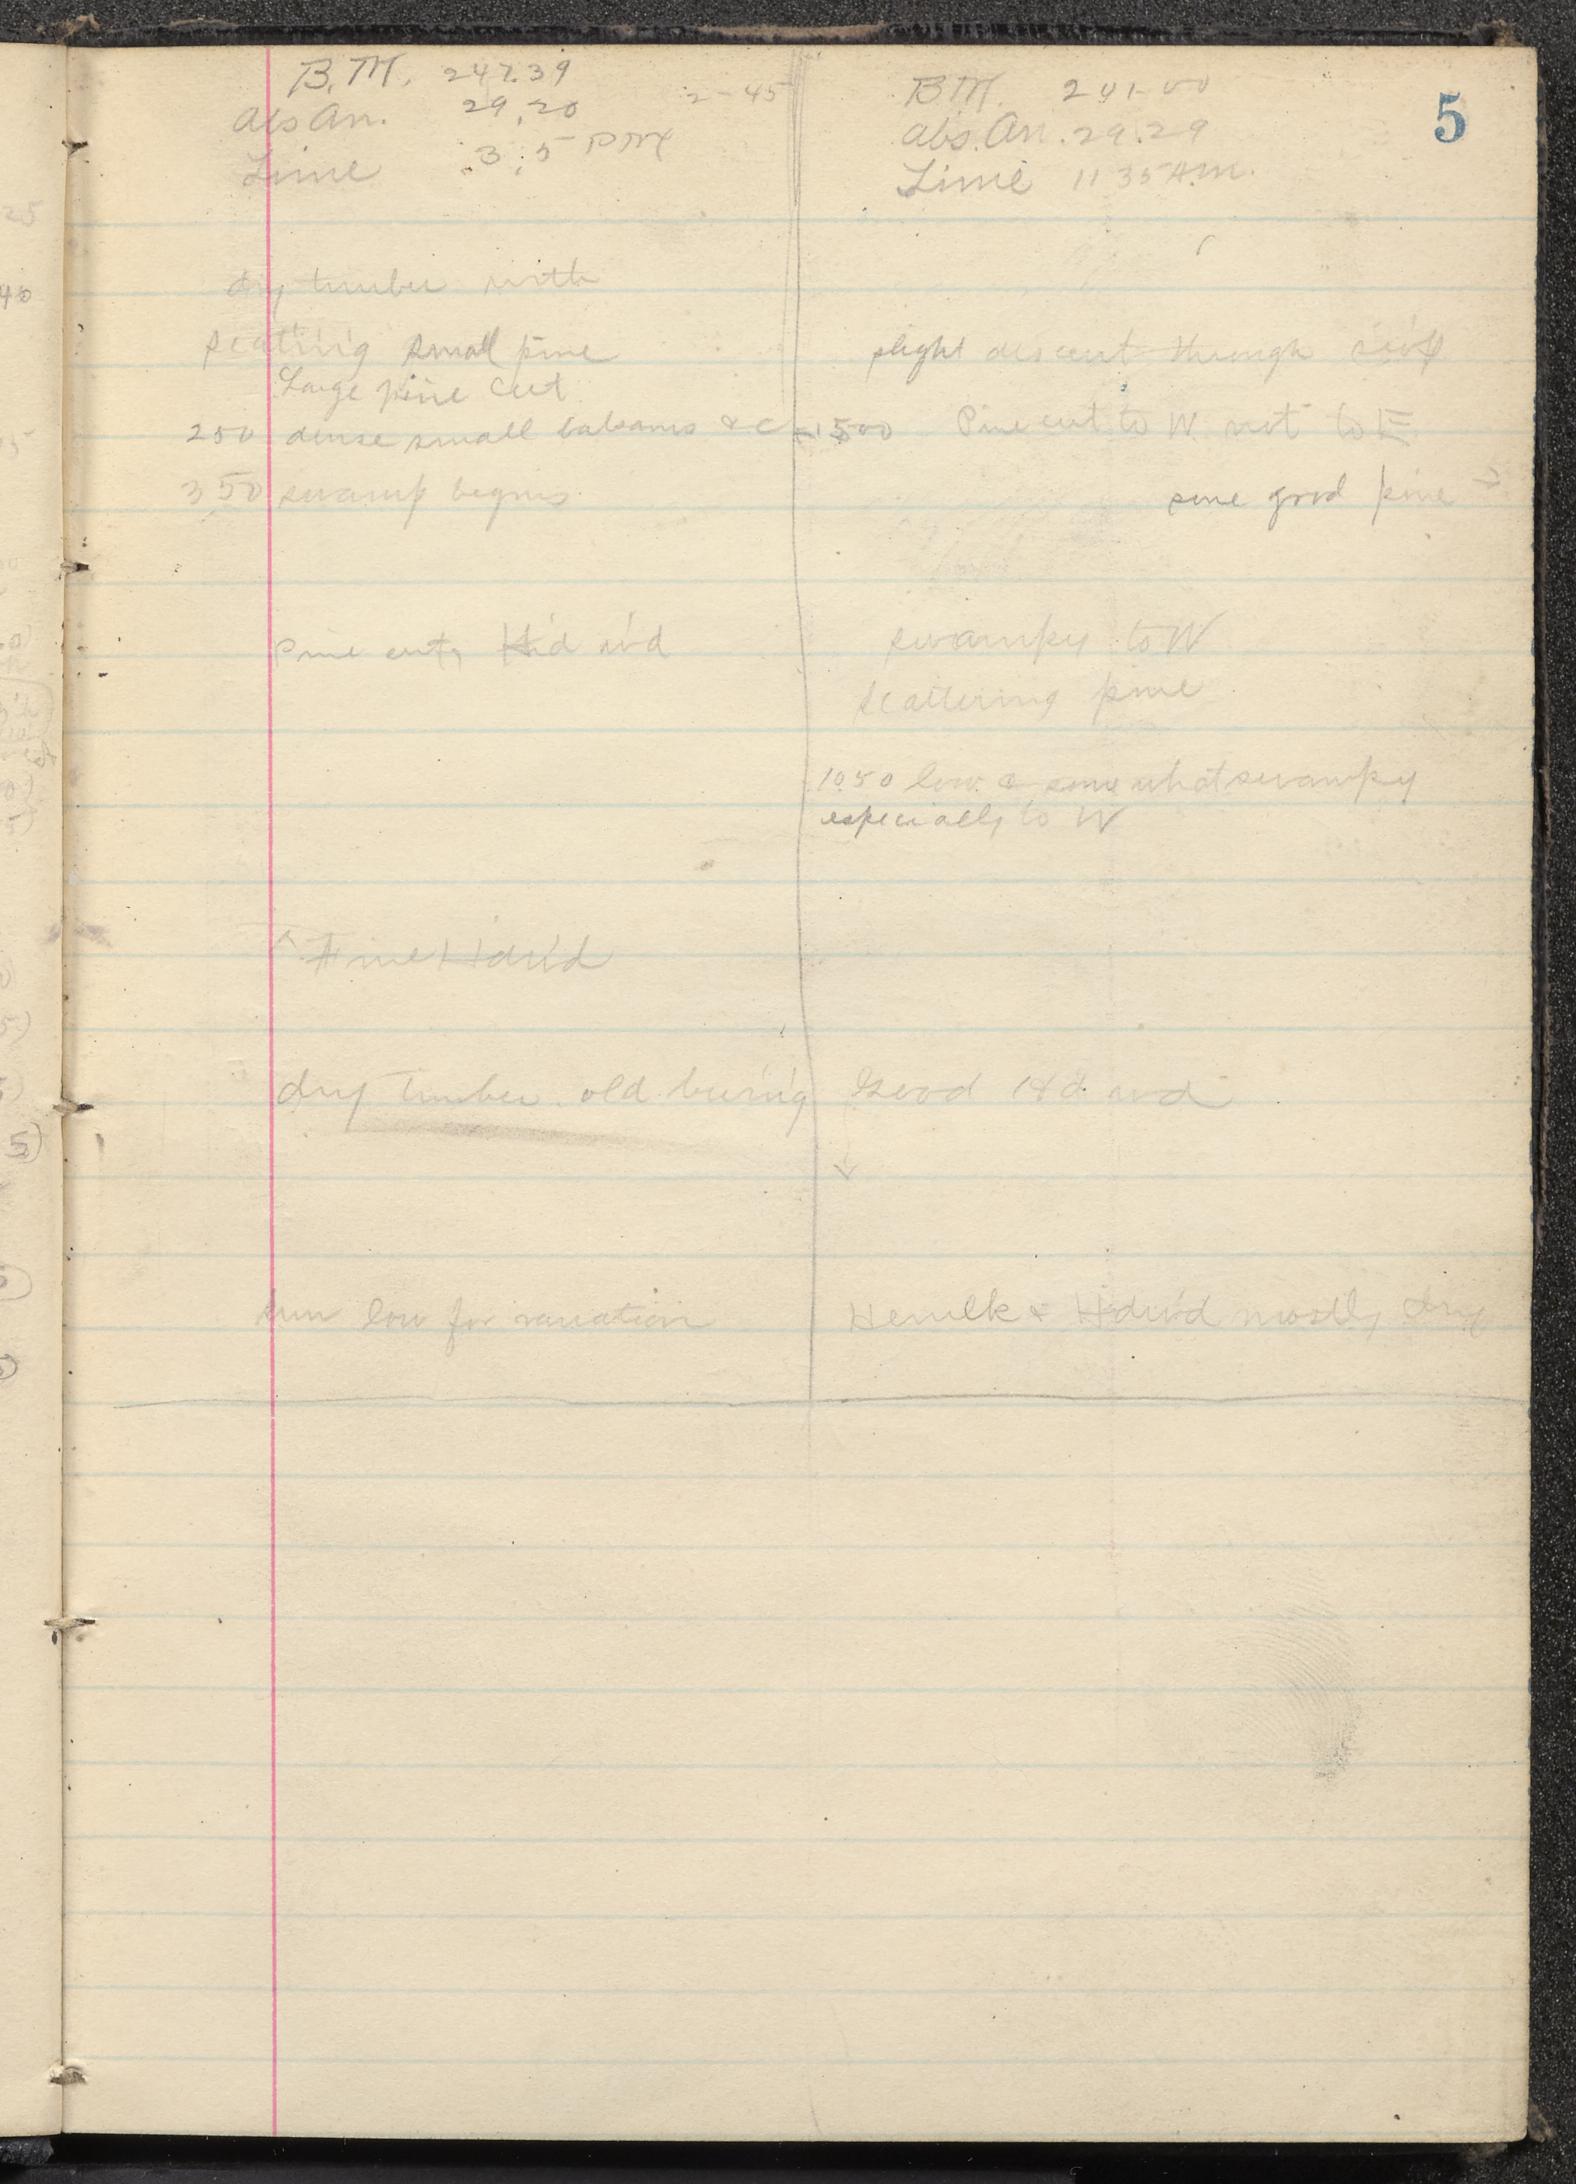 5
B.M. 247.39
Abs An. 29.20 2-45
Time 3.5 PM
dry timber with
scat'ring small pine
Large pine cut
250 dense small balsams & c
350 swamp begins
Pine cut, H'd w'd
Fine Hdw'd
dry timber. old burning
sun low for variation
B.M. 241.00
Abs. An. 29.29
Time 11 35 A.M.
slight descent through
1500 Pine cut to W. not to E
some good pine →
swampy to W
scattering pine
1050 low & some what swampy
especially to W
Good H'd wd
Hemlk & Hdw'd mostly dry